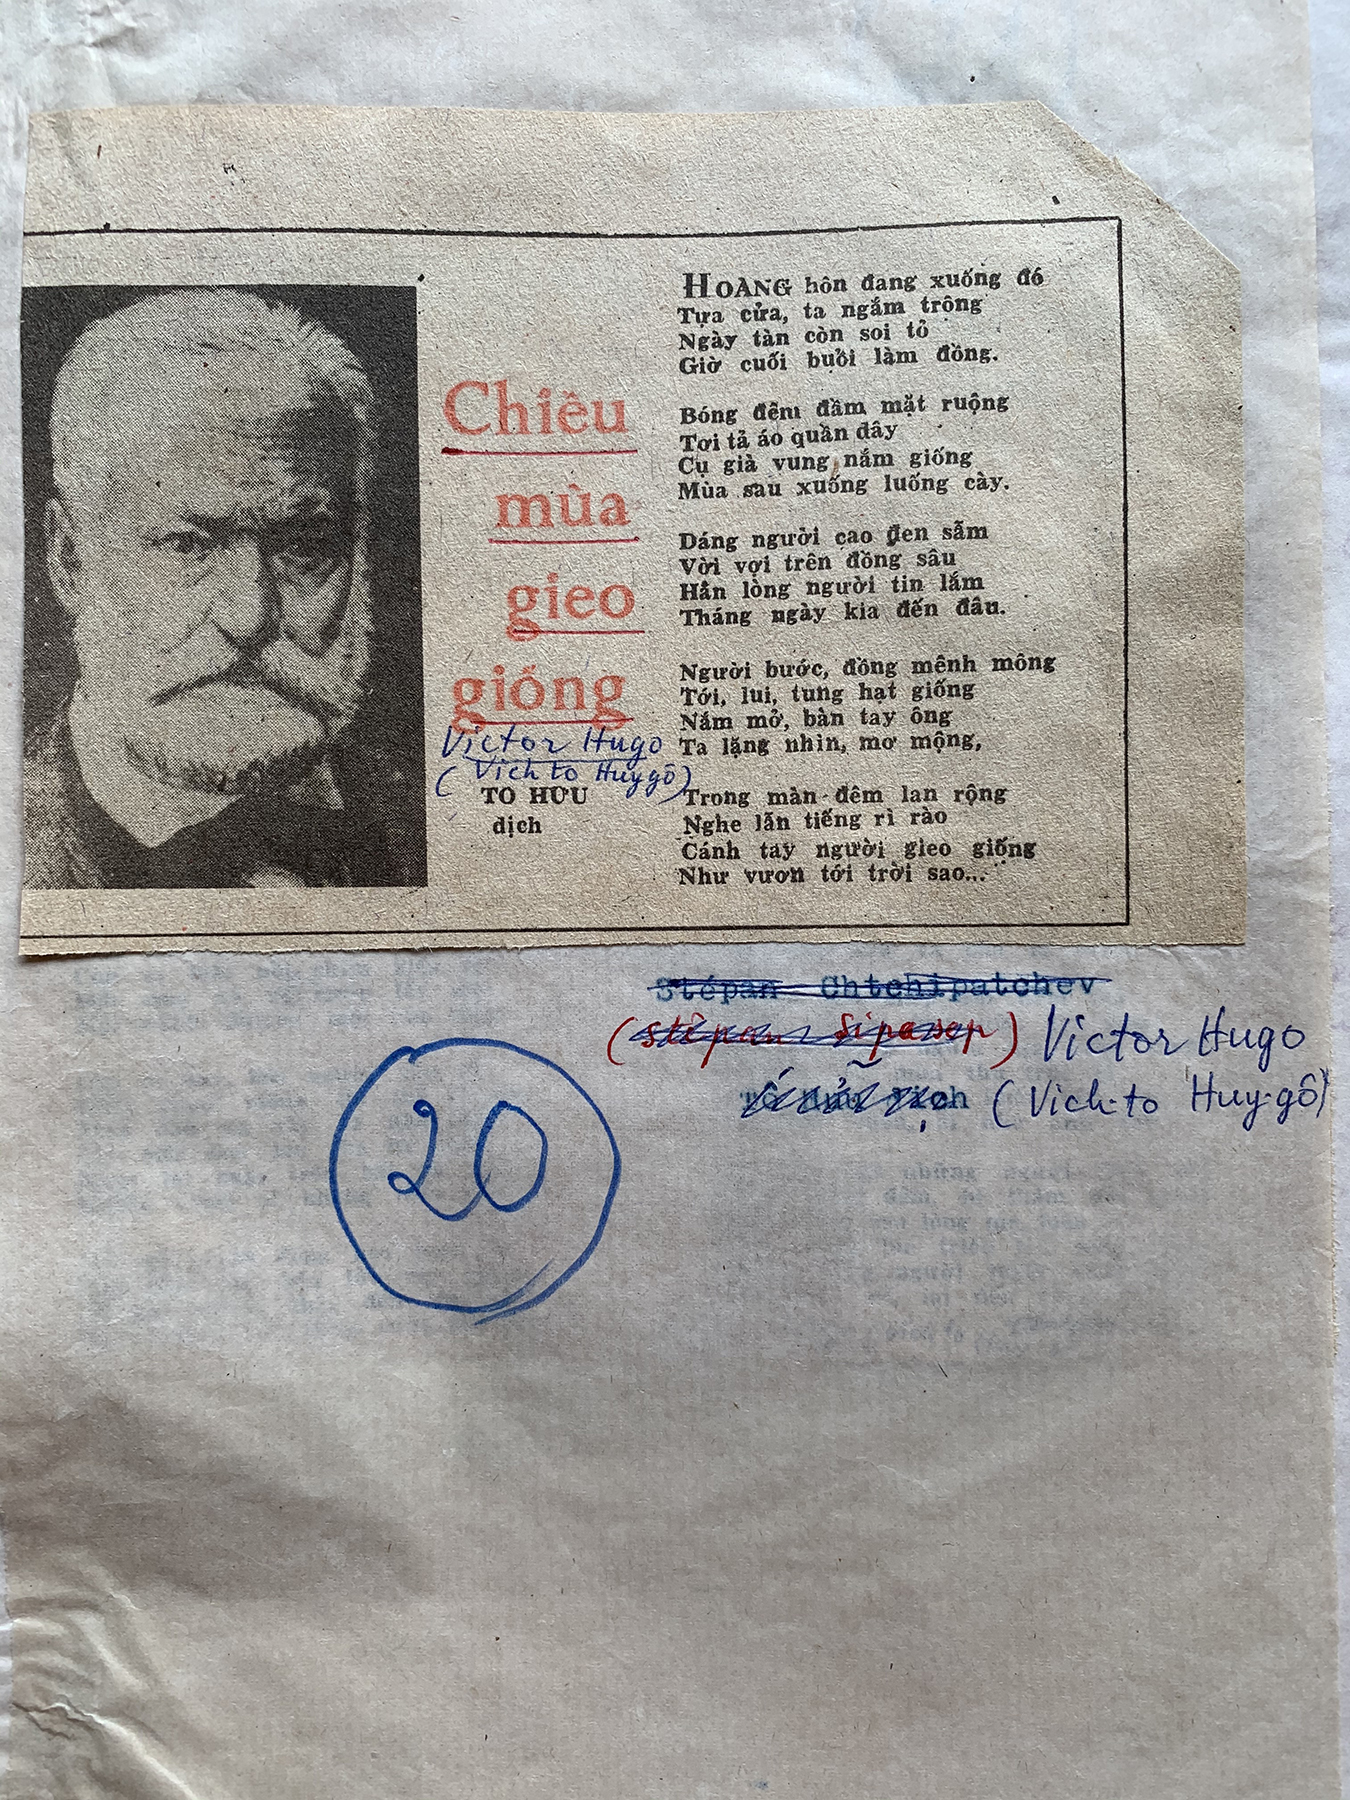 Chiều
mùa
gieo
giống
Victor Hugo
(Vich to Huygô)
TO HỮU
dịch
HOÀNG hôn đang xuống đó
Tựa cửa, ta ngắm trông
Ngày tàn còn soi tỏ
Giờ cuối buổi làm đồng.
Bóng đêm đầm mặt ruộng
Tơi tả áo quần dây
Cụ già vung nắm giống
Mùa sau xuống luống cày.
Dáng người cao đen sẫm
Vời vợi trên đồng sâu
Hẳn lòng người tin lắm
Tháng ngày kia đến đâu.
Người bước, đồng mênh mông
Tới, lui, tung hạt giống
Nắm mở, bàn tay ông
Ta lặng nhìn, mơ mộng,
Trong màn đêm lan rộng
Nghe lẫn tiếng rì rào
Cánh tay người gieo giống
Như vươn tới trời sao...
Stépan Chtchipatchev
(stêpan Sipasep) Victor Hugo
Tố Hữu dịch (Vich-to Huy-gô)
20